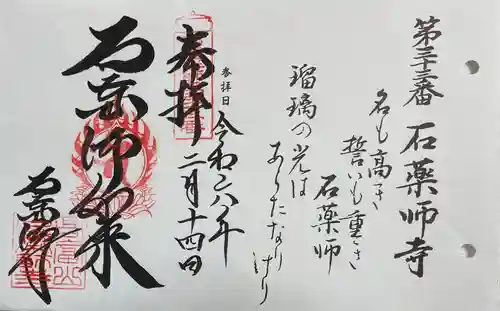 第三十三番 石薬師寺
名も高き
誓いも重き
石薬師
瑠璃の光は
あらたなりけり
参拝日
令和六年
二月十四日
奉拝
石薬師如来
石薬師寺